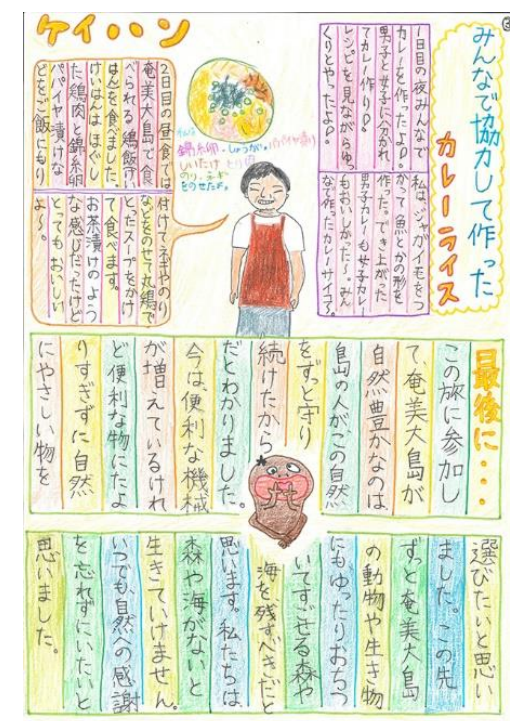 みんなで協力して作った
カレーライス
1日目の夜みんなで
カレーを作ったよ♪。
男子と女子に分かれ
てカレー作り♪。
レシピを見ながらゆっ
くりとやったよ♪
私は、ジャガイモをつ
かって魚とかの形を
作った。でき上がった
男子カレーも女子カレー
もおいしかった〜。みん
なで作ったカレーサイコー。
ケイハン
錦糸卵・しょうが・パパイヤ漬け
しいたけ とり肉
のり・ネギ
をのせたよ。
2日目の昼食では
奄美大島で食
べられる鶏飯(けい
はん)を食べました。
けいはんは ほぐし
た、鶏肉と錦糸卵
パパイヤ漬けな
どをご飯にもり
付けてネギやのり
などをのせて丸鶏で
とったスープをかけ
て食べます。
お茶漬けのよう
な感じだったけど
とってもおいしい
よ〜。
最後に・・・
この旅に参加し
て、奄美大島が
自然豊かなのは
島の人がこの自然
をずっと守り
続けたから
だとわかりました。
今は、便利な機械
が増えているけれ
ど便利な物にたよ
りすぎずに自然
にやさしい物を
選びたいと思い
ました。この先
ずっと奄美大島
の動物や生き物
にもゆったりおちつ
いてすごせる森や
海を残すべきだと
思います。私たちは
森や海がないと
生きていけません。
いつでも、自然への感謝
を忘れずにいたいと
思いました。